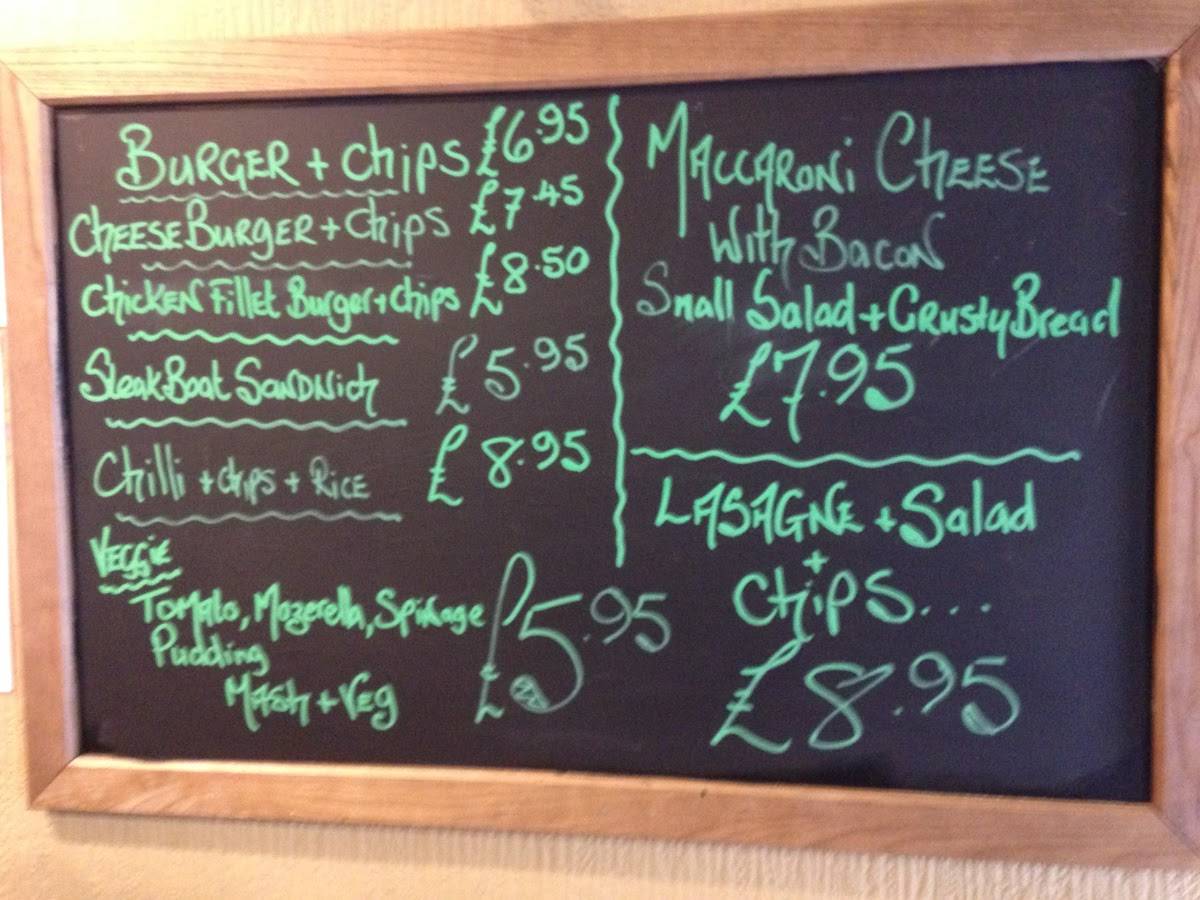 BURGER + Chips £6.95
CHEESEBURGER + Chips £7.45
ChickEN Fillet Burger + chips £8.50
Steak Boat SANDWich £5.95
Chilli + chips + RicE £8.95
VEGGiE
Tomato, Mozerella, Spinage
Pudding
MAsh + VEg £5.95
MACCARONi ChEESE
With BACON
Small Salad + CRusty Bread
£7.95
LASAGNE + Salad
+
Chips....
£8.95